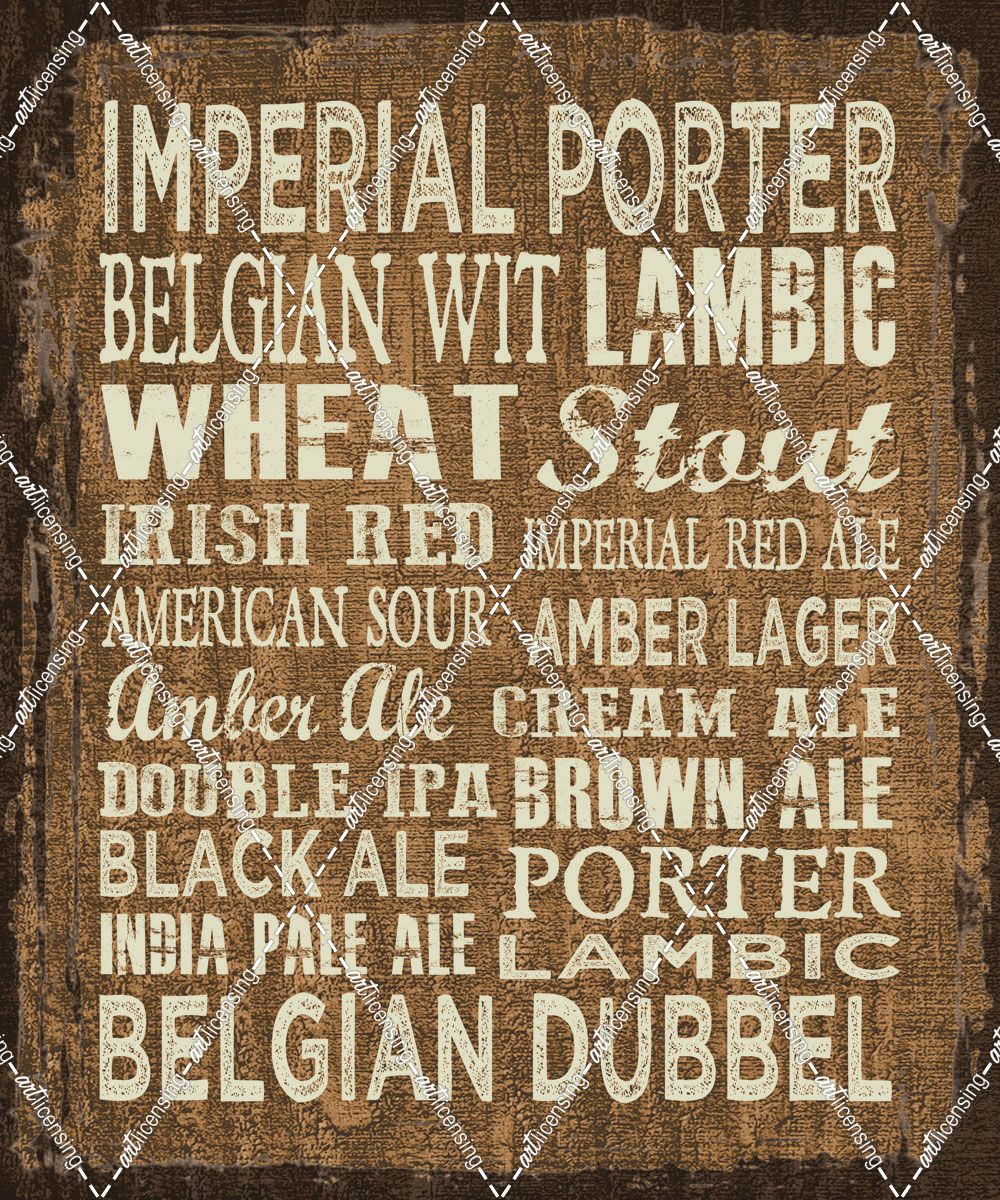 IMPERIAL PORTER
BELGIAN WIT LAMBIC
WHEAT Stout
IRISH RED IMPERIAL RED ALE
AMERICAN SOUR AMBER LAGER
Amber Ale CREAM ALE
DOUBLE IPA BROWN ALE
BLACK ALE PORTER
INDIA PALE ALE LAMBIC
BELGIAN DUBBEL
artlicensing